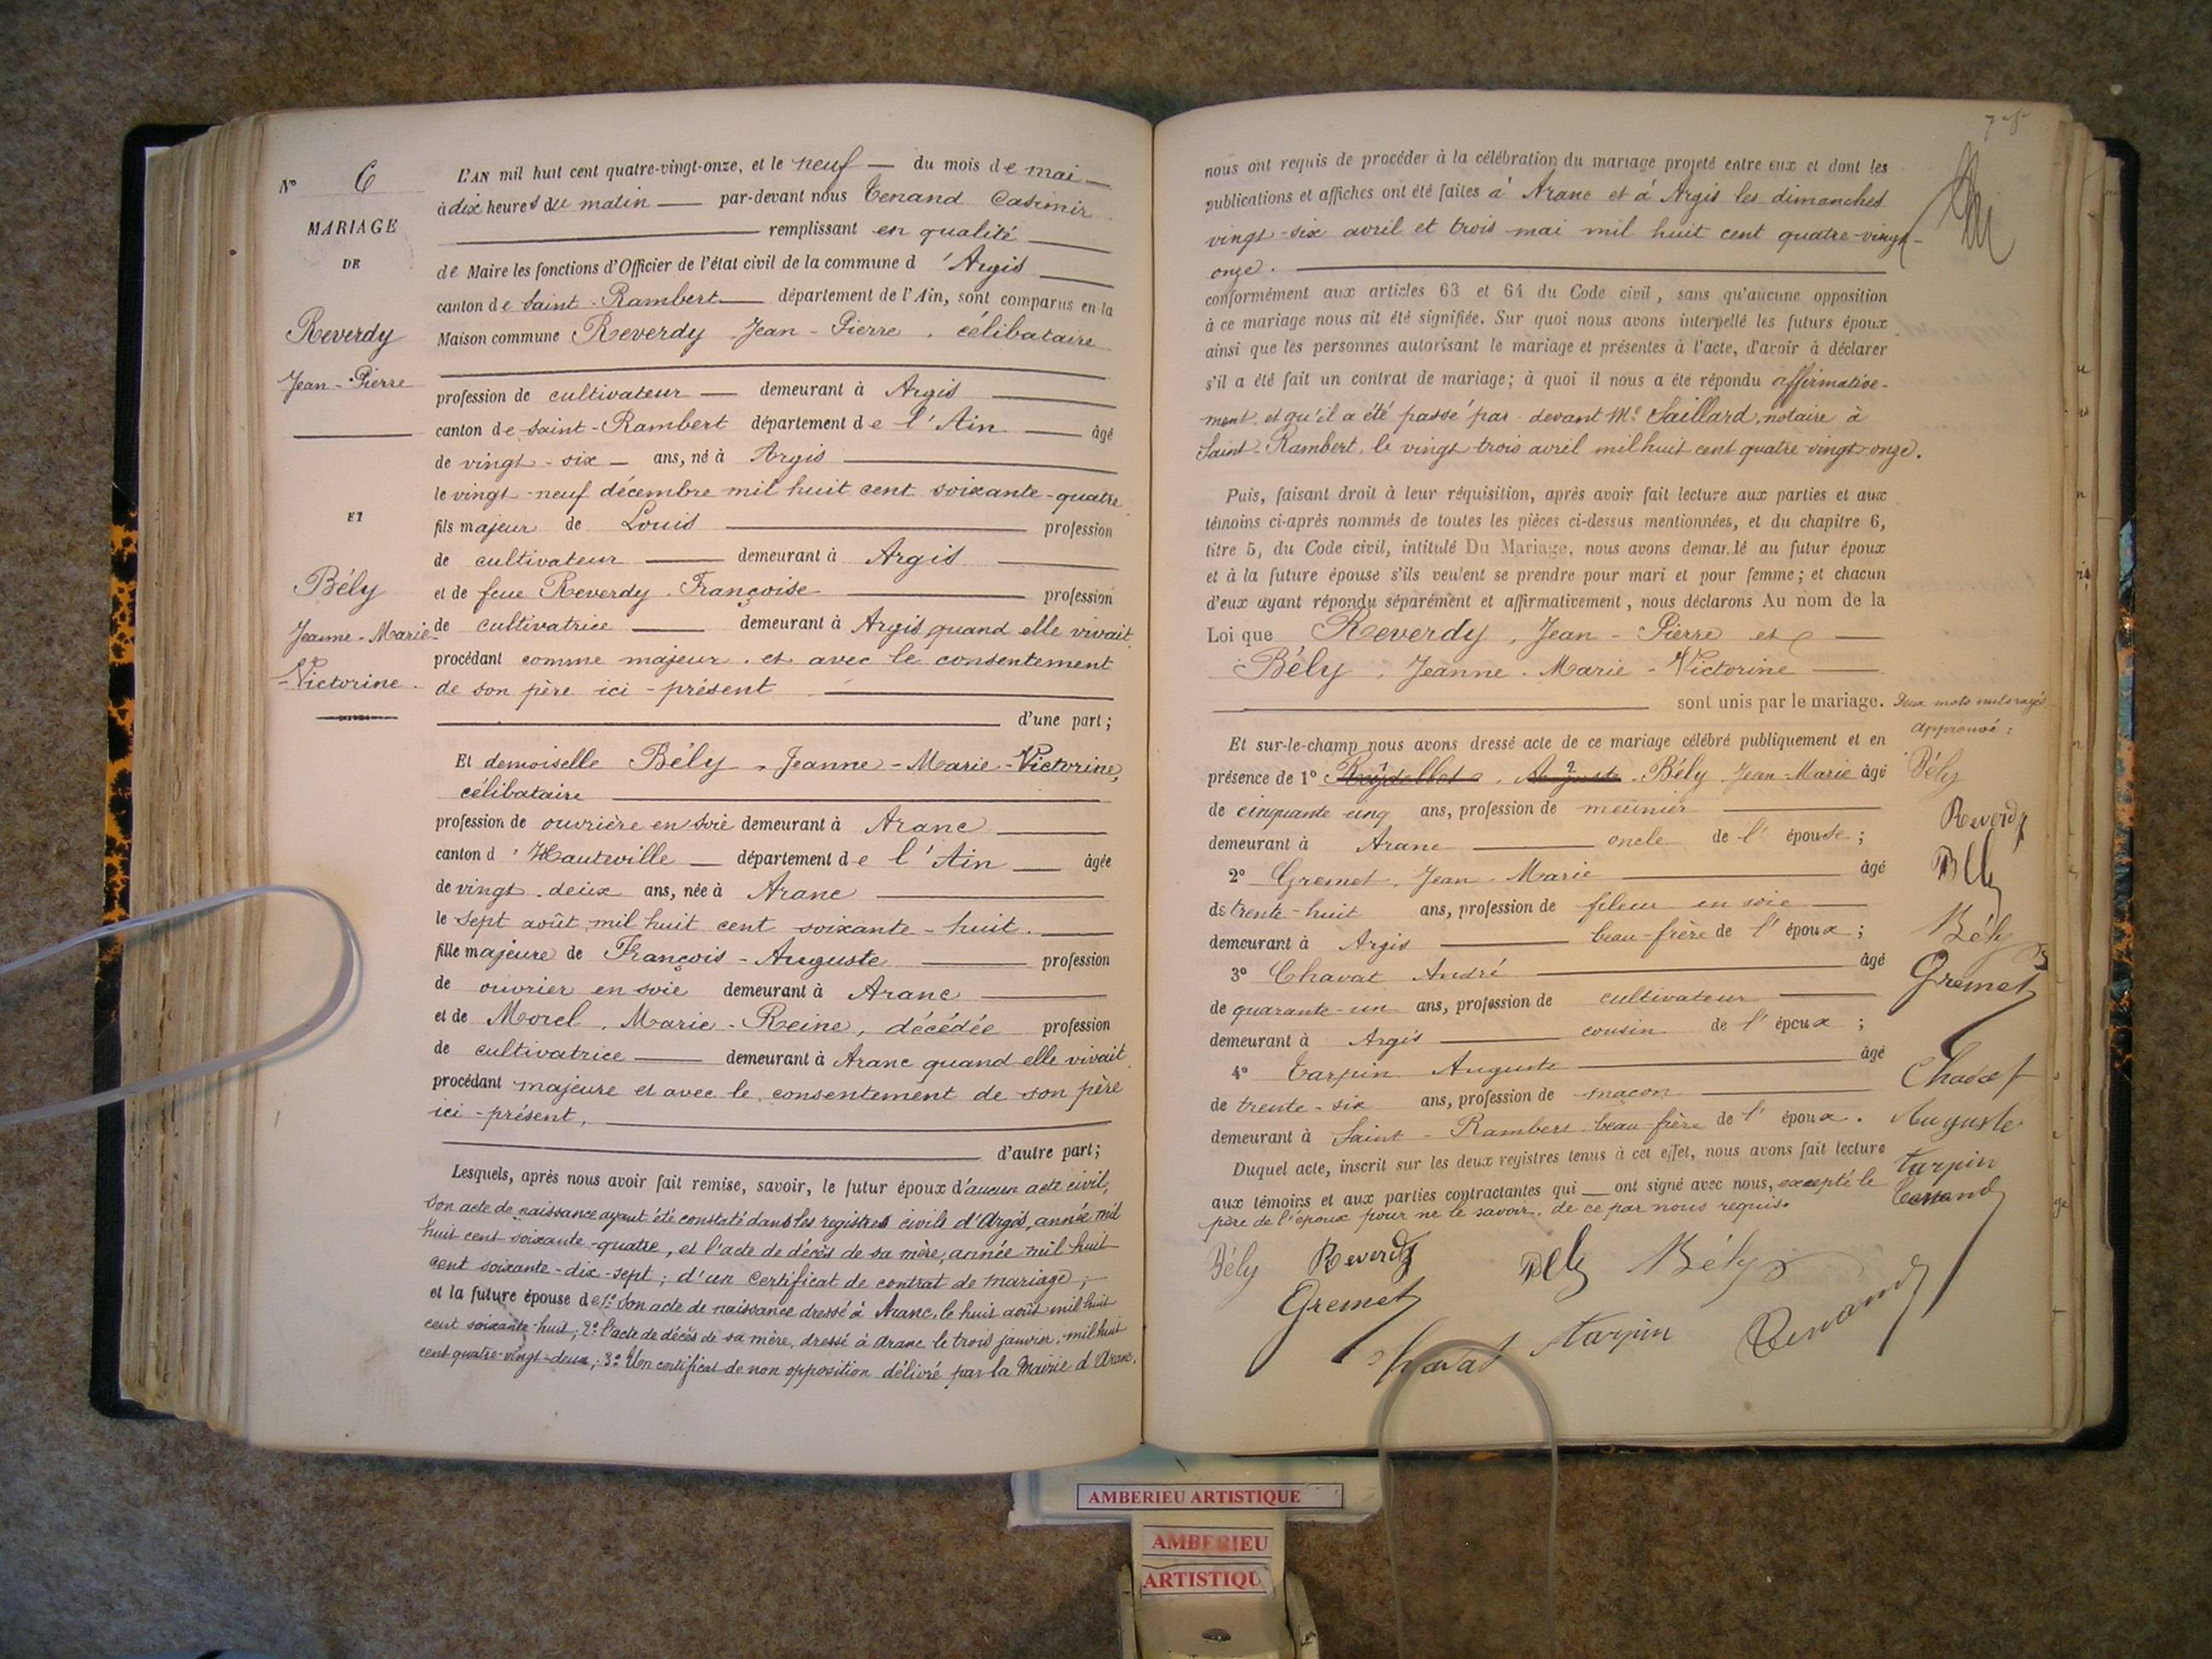 N° 6
MARIAGE
DE
Reverdy
Jean-Pierre
ET
Bély
Jeanne-Marie-
-Victorine.
L'AN mil huit cent quatre-vingt-onze, et le neuf — du mois de mai —
à dix heures du matin — par-devant nous Tenand Casimir
remplissant en qualité
de Maire les fonctions d'Officier de l'état civil de la commune d'Argis
canton de Saint-Rambert — département de l'Ain, sont comparus en la
Maison commune Reverdy Jean-Pierre, célibataire
profession de cultivateur — demeurant à Argis
canton de Saint-Rambert département de l'Ain — âgé
de vingt-six — ans, né à Argis
le vingt-neuf décembre mil huit cent soixante-quatre
fils majeur de Louis — profession
de cultivateur — demeurant à Argis
et de feue Reverdy, Françoise — profession
de cultivatrice — demeurant à Argis quand elle vivait
procédant comme majeur, et avec le consentement
de son père ici-présent
d'une part;
Et demoiselle Bély, Jeanne-Marie-Victorine,
célibataire
profession de ouvrière en soie demeurant à Aranc
canton d'Hauteville — département de l'Ain — âgée
de vingt-deux ans, née à Aranc
le sept août mil huit cent soixante-huit.
fille majeure de François-Auguste — profession
de ouvrier en soie demeurant à Aranc
et de Morel, Marie-Reine, décédée profession
de cultivatrice — demeurant à Aranc quand elle vivait
procédant majeure et avec le consentement de son père
ici-présent,
d'autre part;
Lesquels, après nous avoir fait remise, savoir, le futur époux d'aucun acte civil,
son acte de naissance ayant été constaté dans les registres civils d'Argis, année mil
huit cent soixante-quatre, et l'acte de décès de sa mère, année mil huit
cent soixante-dix-sept; d'un certificat de contrat de mariage;
et la future épouse de 1° Son acte de naissance dressé à Aranc, le huit août mil huit
cent soixante-huit; 2° l'acte de décès de sa mère, dressé à Aranc le trois janvier mil huit
cent quatre-vingt-deux; 3° Un certificat de non opposition délivré par la Mairie d'Aranc.
nous ont requis de procéder à la célébration du mariage projeté entre eux et dont les
publications et affiches ont été faites à Aranc et à Argis les dimanches
vingt-six avril et trois mai mil huit cent quatre-vingt-
onze.
conformément aux articles 63 et 64 du Code civil, sans qu'aucune opposition
à ce mariage nous ait été signifiée. Sur quoi nous avons interpellé les futurs époux
ainsi que les personnes autorisant le mariage et présentes à l'acte, d'avoir à déclarer
s'il a été fait un contrat de mariage; à quoi il nous a été répondu affirmative-
ment, et qu'il a été passé par-devant Me Saillard, notaire à
Saint-Rambert, le vingt-trois avril mil huit cent quatre-vingt-onze.
Puis, faisant droit à leur réquisition, après avoir fait lecture aux parties et aux
témoins ci-après nommés de toutes les pièces ci-dessus mentionnées, et du chapitre 6,
titre 5, du Code civil, intitulé Du Mariage, nous avons demandé au futur époux
et à la future épouse s'ils veulent se prendre pour mari et pour femme; et chacun
d'eux ayant répondu séparément et affirmativement, nous déclarons Au nom de la
Loi que Reverdy, Jean-Pierre et
Bély, Jeanne-Marie-Victorine
sont unis par le mariage.
Et sur-le-champ nous avons dressé acte de ce mariage célébré publiquement et en
présence de 1° Bély Jean-Marie âgé
de cinquante-cinq ans, profession de meunier
demeurant à Aranc — oncle de l'épouse;
2° Gremet, Jean-Marie — âgé
de trente-huit ans, profession de fileur en soie
demeurant à Argis — beau-frère de l'époux;
3° Chavat André — âgé
de quarante-un ans, profession de cultivateur
demeurant à Argis — cousin de l'époux;
4° Tarpin Auguste — âgé
de trente-six ans, profession de maçon
demeurant à Saint-Rambert beau-frère de l'époux.
Duquel acte, inscrit sur les deux registres tenus à cet effet, nous avons fait lecture
aux témoins et aux parties contractantes qui — ont signé avec nous, excepté le
père de l'époux pour ne le savoir, de ce par nous requis.
Bély Reverdy Bély Bély
Gremet
Chavat Tarpin Tenand
Deux mots nuls rayés
Approuvé:
Bély
Reverdy
Bély
Bély
Gremet
Chavat
Auguste
Tarpin
Tenand
AMBERIEU ARTISTIQUE
AMBERIEU
ARTISTIQU